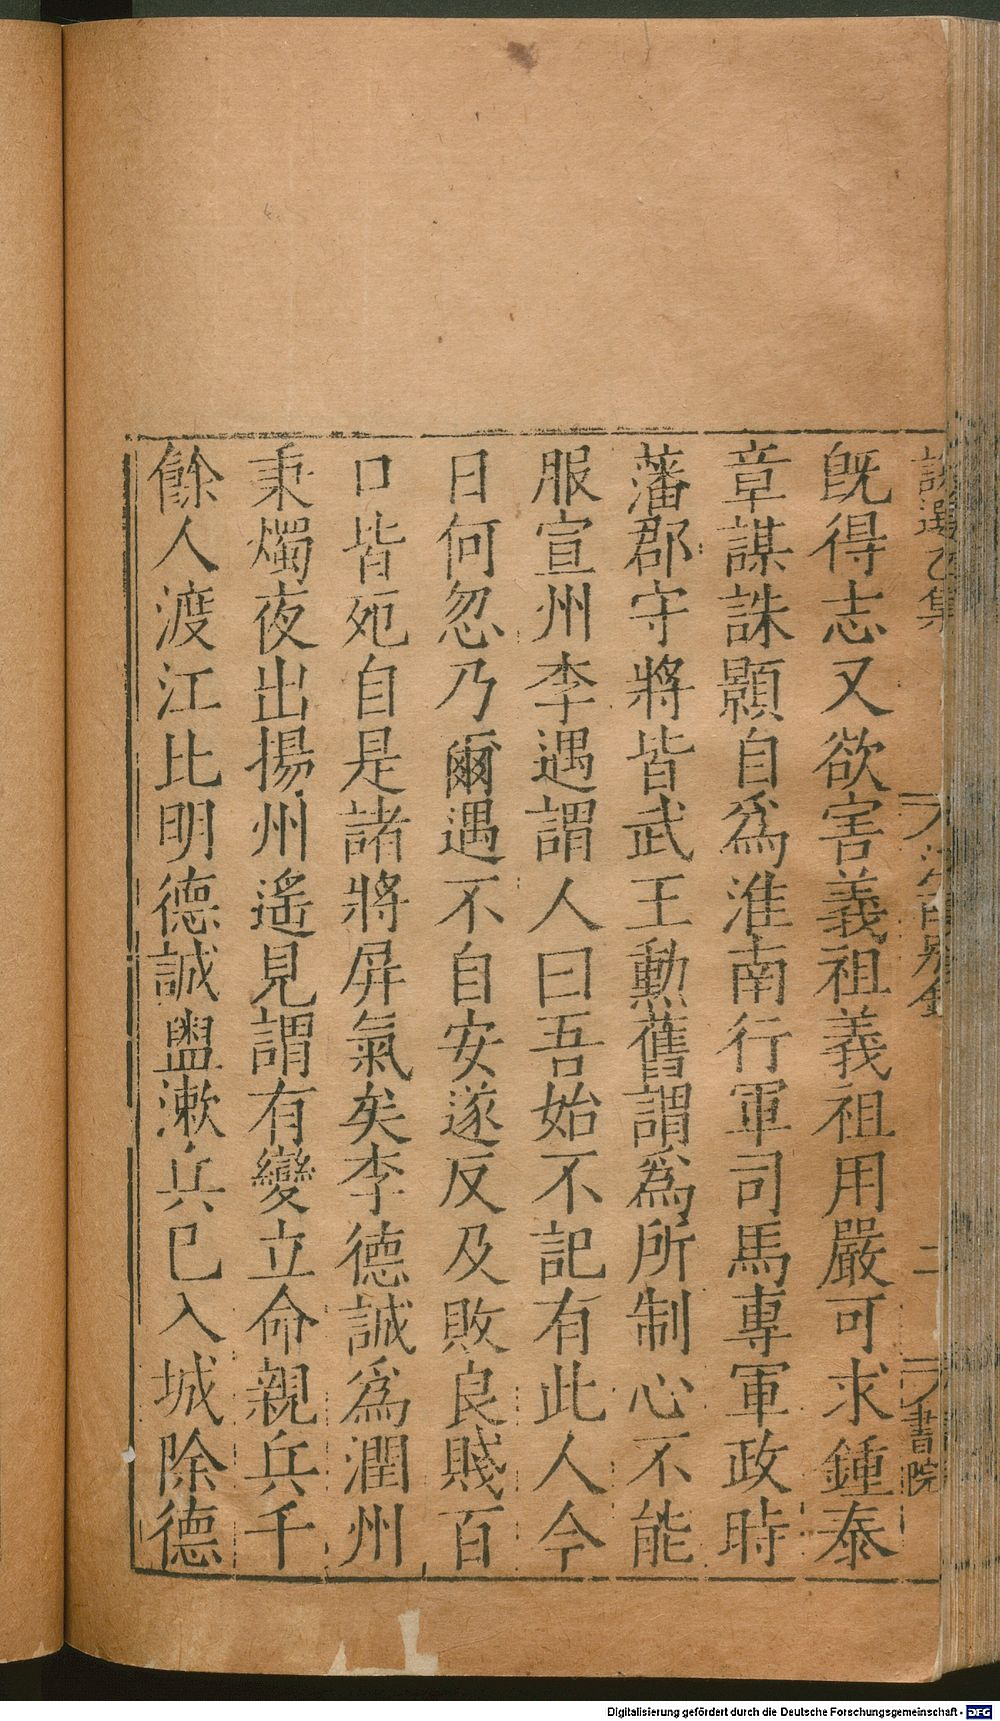 說選乙集
江南別錄
二
書院
旣得志又欲害義祖義祖用嚴可求鍾泰
章謀誅顥自爲淮南行軍司馬專軍政時
藩郡守將皆武王勳舊謂爲所制心不能
服宣州李遇謂人曰吾始不記有此人今
日何忽乃爾遇不自安遂反及敗良賤百
口皆死自是諸將屏氣矣李德誠爲潤州
秉燭夜出揚州遙見謂有變立命親兵千
餘人渡江比明德誠盥漱兵已入城除德
Digitalisierung gefördert durch die Deutsche Forschungsgemeinschaft - DFG